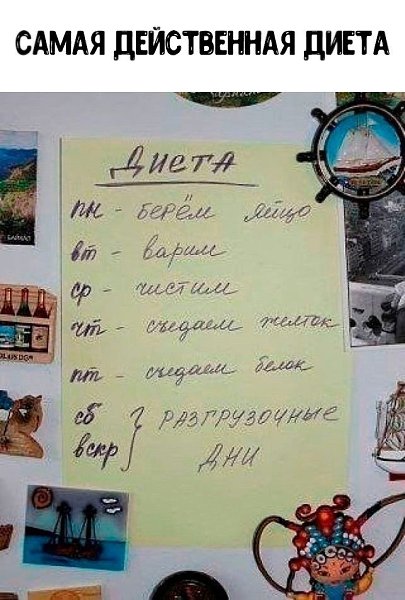 САМАЯ ДЕЙСТВЕННАЯ ДИЕТА
ДИЕТА
пн - БЕРЁМ яйцо
вт - варим
ср - чистим
чт - съедаем желток
пт - съедаем белок
сб } РАЗГРУЗОЧНЫЕ
вскр } ДНИ